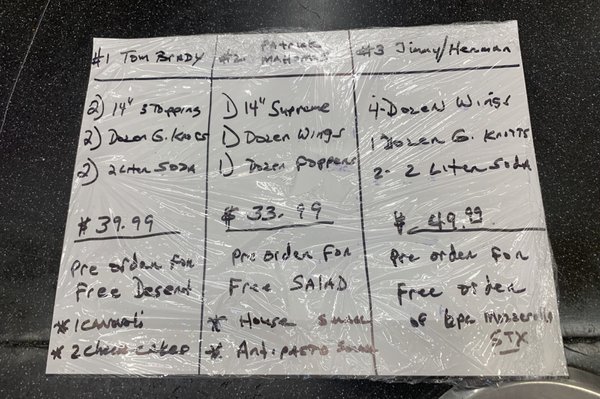 #1 Tom Brady
2) 14" 3 Topping
2) Dozen G. Knots
2) 2 Liter Soda
$39.99
Pre order for
Free Desert
* 1 Cannoli
* 2 cheese cakes
#2 Patrick
Mahomes
1) 14" Supreme
1) Dozen Wings
1) Dozen Poppers
$33.99
Pre order for
Free SALAD
* House Small
* Antipasto Small
#3 Jimmy/Herman
4-Dozen Wings
1 Dozen G. Knotts
2- 2 Liter Soda
$49.99
Pre order for
Free order
of 6pc mozzarella
STX